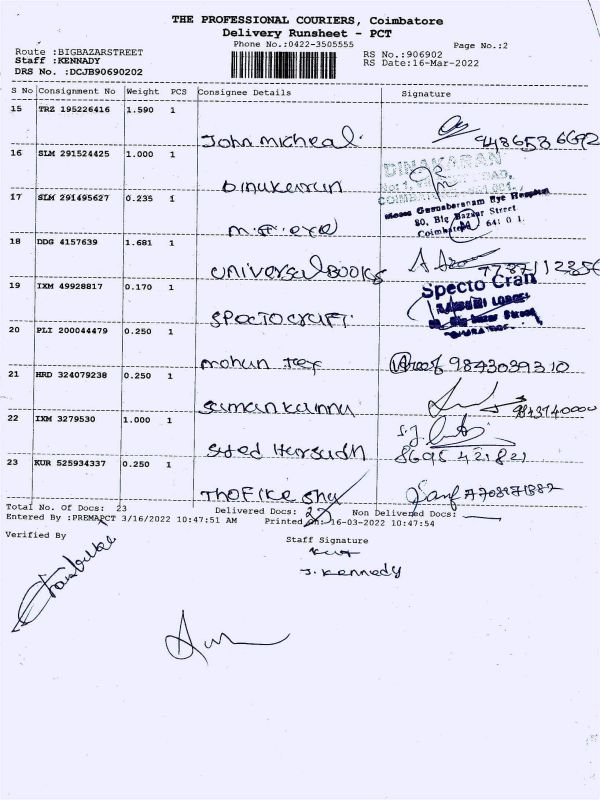 THE PROFESSIONAL COURIERS, Coimbatore
Delivery Runsheet - PCT
Phone No.:0422-3505555 Page No.:2
Route :BIGBAZARSTREET RS No.:906902
Staff :KENNADY RS Date:16-Mar-2022
DRS No. :DCJB90690202
S No Consignment No Weight PCS Consignee Details Signature
15 TRZ 195226416 1.590 1
John micheal
16 SLM 291524425 1.000 1 DINAKARAN
17 SLM 291495627 0.235 1 Eye Hospital
80, Big Bazaar Street
m.g. eye Coimbatore 64: 0 1.
18 DDG 4157639 1.681 1
universal BOOKS
19 IXM 49928817 0.170 1 Specto Craft
SPECTO CRAFT. Big bazar Street
20 PLI 200044479 0.250 1
mohan tex 9843039310
21 HRD 324079238 0.250 1
9843740000
22 IXM 3279530 1.000 1 S.J.
Syed 8695421821
23 KUR 525934337 0.250 1
Total No. Of Docs: 23 Delivered Docs: Non Delivered Docs:
Entered By :PREMAPCT 3/16/2022 10:47:51 AM Printed On: 16-03-2022 10:47:54
Verified By Staff Signature
J. Kennedy